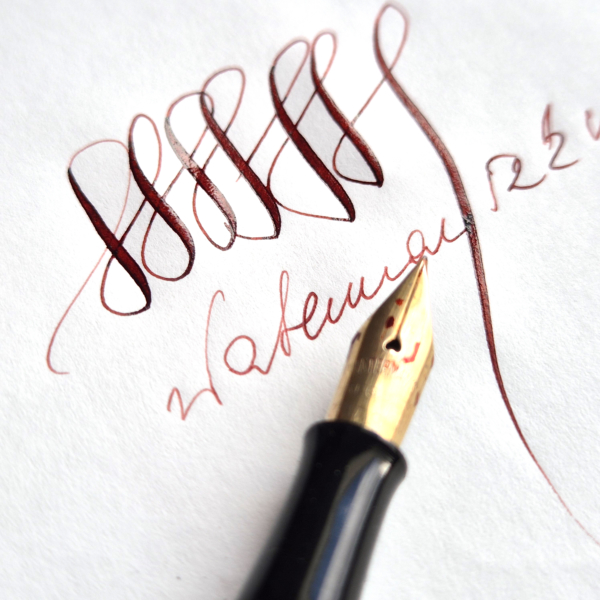 Waterman 52½ v